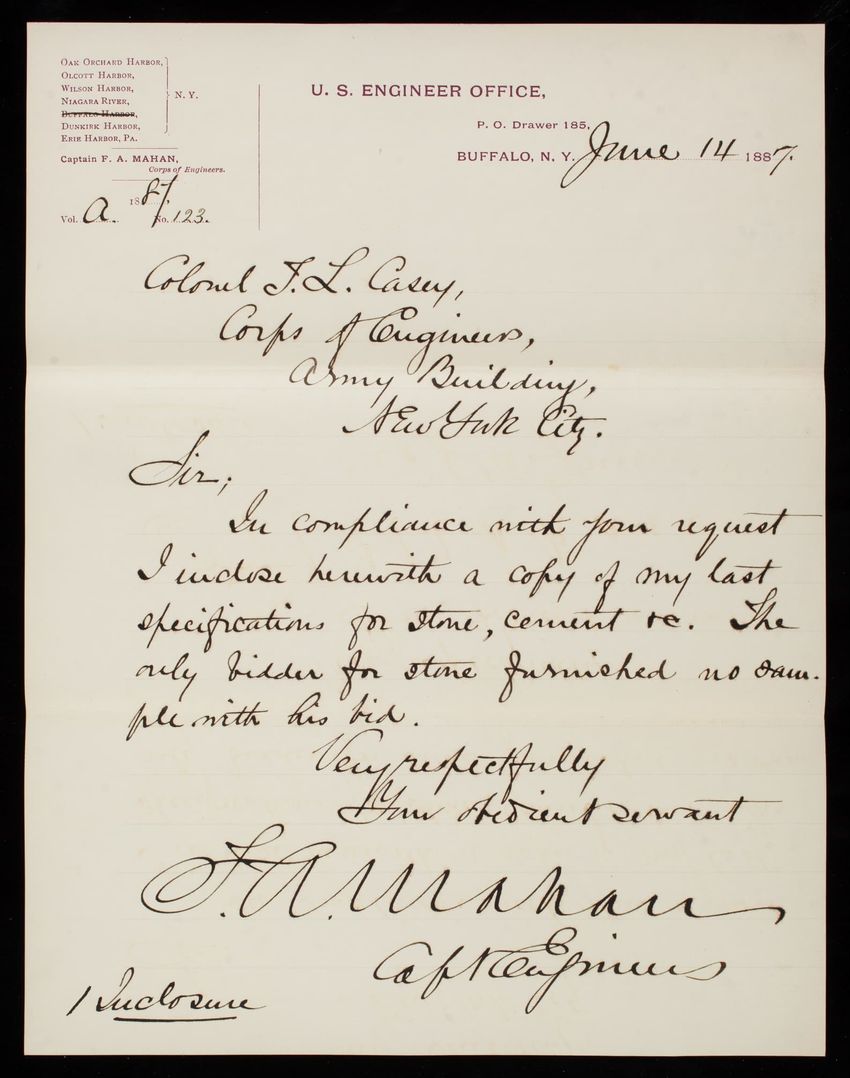 OAK ORCHARD HARBOR,
OLCOTT HARBOR,
WILSON HARBOR,
NIAGARA RIVER,
BUFFALO HARBOR,
DUNKIRK HARBOR,
ERIE HARBOR, PA.
N. Y.
Captain F. A. MAHAN,
Corps of Engineers.
1887.
Vol. A. No. 123.
U. S. ENGINEER OFFICE,
P. O. Drawer 185,
BUFFALO, N. Y. June 14 1887.
Colonel T. L. Casey,
Corps of Engineers,
Army Building,
New York City.
Sir;
In compliance with your request
I inclose herewith a copy of my last
specifications for stone, cement &c. The
only bidder for stone furnished no sam-
ple with his bid.
Very respectfully
Your obedient servant
F. A. Mahan
Capt Engineers
1 Inclosure